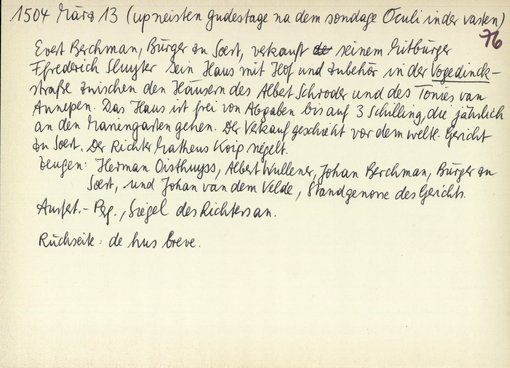 1504 März 13 (up neisten gudestage na dem sondage Oculi in der vasten)
76
Evert Berchman, Bürger zu Soest, verkauft seinem Mitbürger
Ffrederich Sluyter sein Haus mit Hof und Zubehör in der Vogedinck-
straße zwischen den Häusern des Albert Schroder und des Tonies van
Annepen. Das Haus ist frei von Abgaben bis auf 3 Schilling, die jährlich
an den Mariengarten gehen. Der Verkauf geschieht vor dem weltl. Gericht
zu Soest. Der Richter Matheus Koip siegelt.
Zeugen: Herman Oisthuyss, Albert Wullener, Johan Berchman, Bürger zu
Soest, und Johan van dem Velde, Standgenosse des Gerichts.
Ausf. - Pg., Siegel des Richters an.
Rückseite: de hus breve.